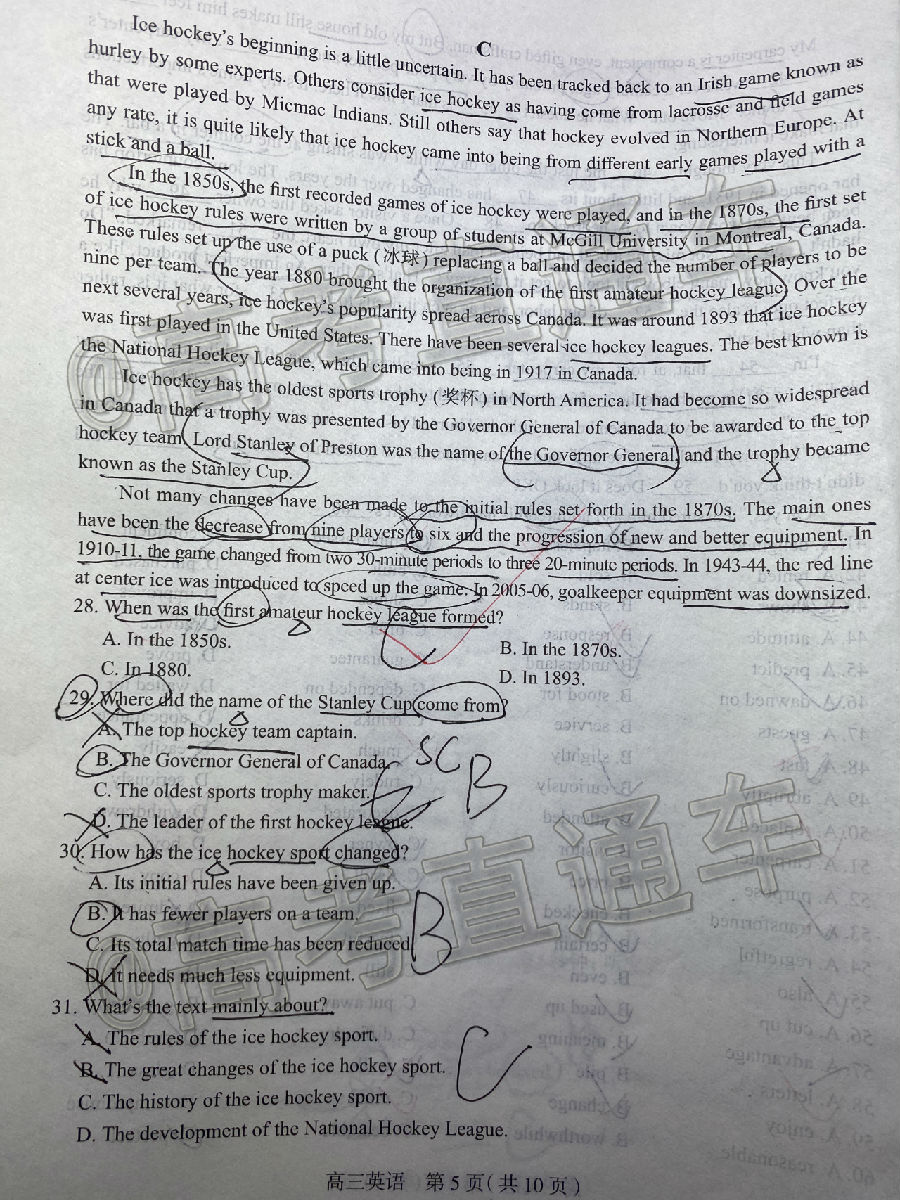 C
Ice hockey's beginning is a little uncertain. It has been tracked back to an Irish game known as
hurley by some experts. Others consider ice hockey as having come from lacrosse and field games
that were played by Micmac Indians. Still others say that hockey evolved in Northern Europe. At
any rate, it is quite likely that ice hockey came into being from different early games played with a
stick and a ball.
In the 1850s, the first recorded games of ice hockey were played, and in the 1870s, the first set
of ice hockey rules were written by a group of students at McGill University in Montreal, Canada.
These rules set up the use of a puck (冰球) replacing a ball and decided the number of players to be
nine per team. The year 1880 brought the organization of the first amateur hockey league. Over the
next several years, ice hockey's popularity spread across Canada. It was around 1893 that ice hockey
was first played in the United States. There have been several ice hockey leagues. The best known is
the National Hockey League, which came into being in 1917 in Canada.
Ice hockey has the oldest sports trophy (奖杯) in North America. It had become so widespread
in Canada that a trophy was presented by the Governor General of Canada to be awarded to the top
hockey team. Lord Stanley of Preston was the name of the Governor General, and the trophy became
known as the Stanley Cup.
Not many changes have been made to the initial rules set forth in the 1870s. The main ones
have been the decrease from nine players to six and the progression of new and better equipment. In
1910-11, the game changed from two 30-minute periods to three 20-minute periods. In 1943-44, the red line
at center ice was introduced to speed up the game. In 2005-06, goalkeeper equipment was downsized.
28. When was the first amateur hockey league formed?
A. In the 1850s.
B. In the 1870s.
C. In 1880.
D. In 1893.
C
29. Where did the name of the Stanley Cup come from?
A. The top hockey team captain.
B. The Governor General of Canada.
C. The oldest sports trophy maker.
D. The leader of the first hockey league.
SC
B
30. How has the ice hockey sport changed?
A. Its initial rules have been given up.
B. It has fewer players on a team.
C. Its total match time has been reduced.
D. It needs much less equipment.
B
31. What's the text mainly about?
A. The rules of the ice hockey sport.
B. The great changes of the ice hockey sport.
C. The history of the ice hockey sport.
D. The development of the National Hockey League.
C
高三英语 第 5 页(共 10 页)
@高考直通车
@高考直通车